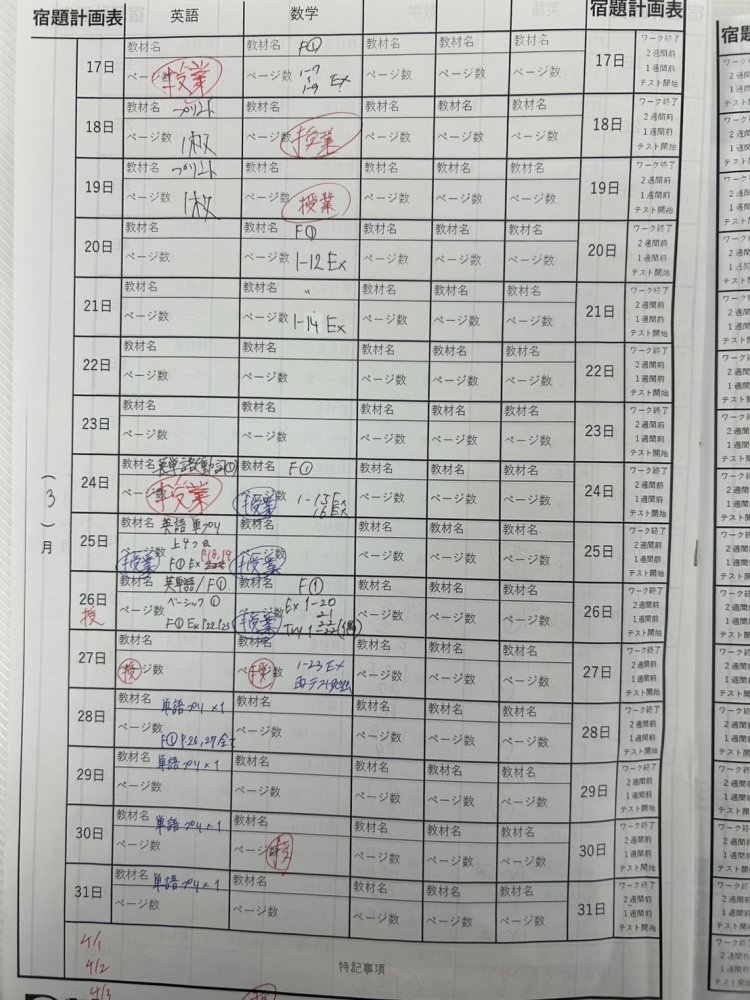 宿題計画表 英語 数学 宿題計画表
(3)月
17日 教材名 教材名 F① 教材名 教材名 教材名 17日 ワーク終了 2週間前 1週間前 テスト開始
ページ数 授業 ページ数 1-7 1-9 Ex ページ数 ページ数 ページ数
18日 教材名 プリント 教材名 教材名 教材名 教材名 18日 ワーク終了 2週間前 1週間前 テスト開始
ページ数 1枚 ページ数 授業 ページ数 ページ数 ページ数
19日 教材名 プリント 教材名 教材名 教材名 教材名 19日 ワーク終了 2週間前 1週間前 テスト開始
ページ数 1枚 ページ数 授業 ページ数 ページ数 ページ数
20日 教材名 教材名 F① 教材名 教材名 教材名 20日 ワーク終了 2週間前 1週間前 テスト開始
ページ数 ページ数 1-12 Ex ページ数 ページ数 ページ数
21日 教材名 教材名 〃 教材名 教材名 教材名 21日 ワーク終了 2週間前 1週間前 テスト開始
ページ数 ページ数 1-14 Ex ページ数 ページ数 ページ数
22日 教材名 教材名 教材名 教材名 教材名 22日 ワーク終了 2週間前 1週間前 テスト開始
ページ数 ページ数 ページ数 ページ数 ページ数
23日 教材名 教材名 教材名 教材名 教材名 23日 ワーク終了 2週間前 1週間前 テスト開始
ページ数 ページ数 ページ数 ページ数 ページ数
24日 教材名 英単語 教材名 F① 教材名 教材名 教材名 24日 ワーク終了 2週間前 1週間前 テスト開始
ページ数 授業 ページ数 授業 1-15 Ex 16 Ex ページ数 ページ数 ページ数
25日 教材名 英語 単プリ 教材名 教材名 教材名 教材名 25日 ワーク終了 2週間前 1週間前 テスト開始
ページ数 授業 F① Ex P.18,19 ページ数 授業 ページ数 ページ数 ページ数
26日 授 教材名 英単語/F① 教材名 F① 教材名 教材名 教材名 26日 ワーク終了 2週間前 1週間前 テスト開始
ページ数 ベーシック① F① Ex P.22,23 ページ数 授業 Ex 1-20 21 22 Try 1-22(偶) ページ数 ページ数 ページ数
27日 教材名 教材名 教材名 教材名 教材名 27日 ワーク終了 2週間前 1週間前 テスト開始
ページ数 授 ページ数 授 1-23 Ex ページ数 ページ数 ページ数
28日 教材名 単語プリ×1 教材名 教材名 教材名 教材名 28日 ワーク終了 2週間前 1週間前 テスト開始
ページ数 F① P.26,27全て ページ数 ページ数 ページ数 ページ数
29日 教材名 単語プリ×1 教材名 教材名 教材名 教材名 29日 ワーク終了 2週間前 1週間前 テスト開始
ページ数 ページ数 ページ数 ページ数 ページ数
30日 教材名 単語プリ×1 教材名 教材名 教材名 教材名 30日 ワーク終了 2週間前 1週間前 テスト開始
ページ数 ページ数 授 ページ数 ページ数 ページ数
31日 教材名 単語プリ×1 教材名 教材名 教材名 教材名 31日 ワーク終了 2週間前 1週間前 テスト開始
ページ数 ページ数 ページ数 ページ数 ページ数
4/1
4/2
特記事項
4/3